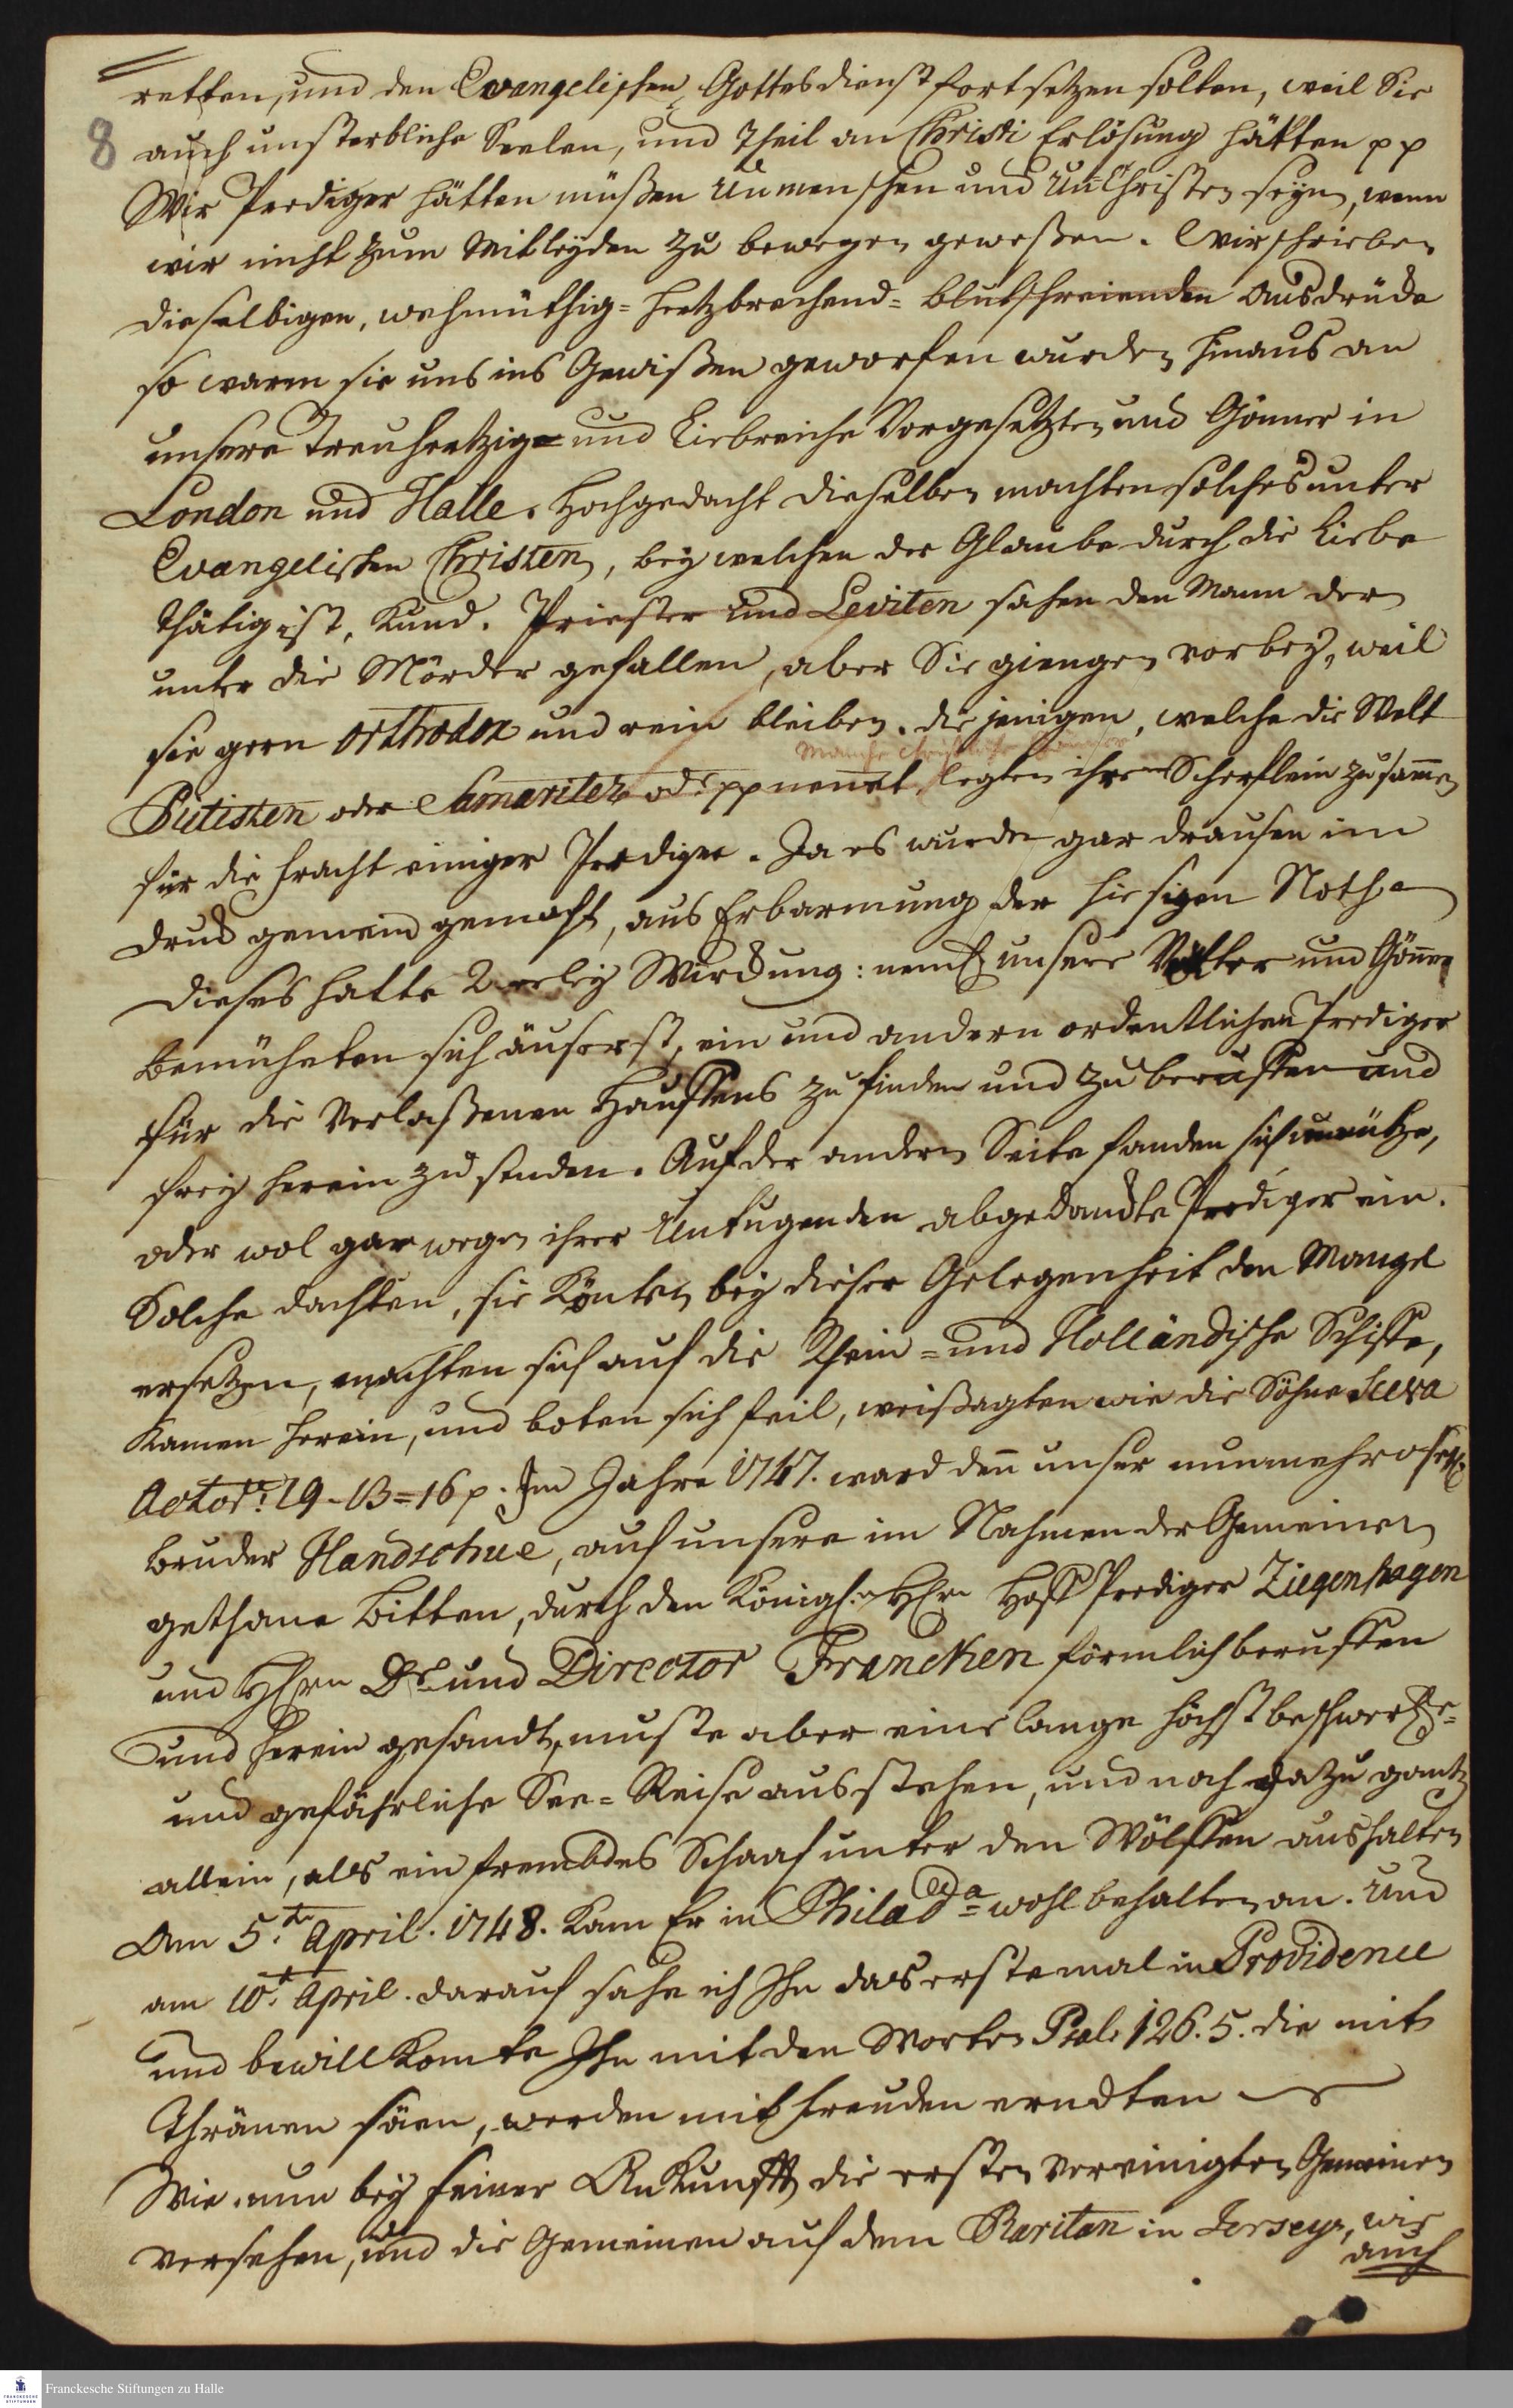 retten, und den Evangelischen Gottesdienst fortsetzen solten, weil Sie
8
auch unsterbliche Seelen, und Theil an Christi Erlösung hätten pp
Wir Prediger hätten müßen Unmenschen und Un-Christen seyn, wenn
wir nicht zum Mitleyden zu bewegen geweßen. Wir schrieben
dieselbigen, wehmüthig= hertzbrechend= blutschreienden Ausdrücke
so warm sie uns ins Gewißen geworfen wurden hinaus an
unsere Treuhertzige und Liebreiche Vorgesetzten und Gönner in
London und Halle. Hochgedacht dieselben machten solches unter
Evangelischen Christen, bey welchen der Glaube durch die Liebe
thätig ist, Kund. Priester und Leviten sahen den Mann der
unter die Mörder gefallen, aber Sie giengen vorbey, weil
sie gern orthodox und rein bleiben. die jenigen, welche die Welt
Manche Christliche
Pietisten oder Samariter od. pp nennet, legten ihre Scherflein zusammen
für die Fracht einiger Prediger. Ja es wurde gar drausen im
Druck gemein gemacht, aus Erbarmung der hiesigen Noth.
Dieses hatte 2erley Wirckung: neml. unsere Vätter und Gönner
bemüheten sich äuserst, ein und andern ordentlichen Prediger
für die Verlaßenen Hauffens zu finden und zu beruffen und
frey herein zu senden. Auf der andern Seite fanden sich unnütze,
oder wol gar wegen ihrer Untugenden abgedanckte Prediger ein.
Solche dachten, sie Könten bey dieser Gelegenheit den Mangel
ersetzen, machten sich auf die Rhein= und Holländische Schiffe,
Kamen herein, und boten sich feil, weißagten wie die Söhne Sceva
Actor. 19-13=16 p. Im Jahre 1747. ward den unser nunmehro seel.
Bruder Handschue, auf unsere im Nahmen der Gemeinen
gethane Bitten, durch den Königl. HErn Hoff Prediger Ziegenhagen
und HErrn Dr und Director Francken förmlich beruffen
und herein gesandt, muste aber eine lange höchstbeschwerl.=
und gefährliche See=Reise ausstehen, und noch dazu gantz
allein, als ein frembdes Schaaf unter den Wölffen aushalten
Am 5ten April. 1748. Kam Er in Philada wohl behalten an. Und
am 10t April. darauf sahe ich Ihn das erstemal in Providence
und bewillkomte Ihn mit den Worten Psal. 126. 5. die mit
Thränen säen, werden mit Freuden erndten
Wie nun bey seiner Ankunfft die ersten vereinigten Gemeinen
versehen, und die Gemeinen auf dem Raritan in Jersey, wie
auch
Franckesche Stiftungen zu Halle